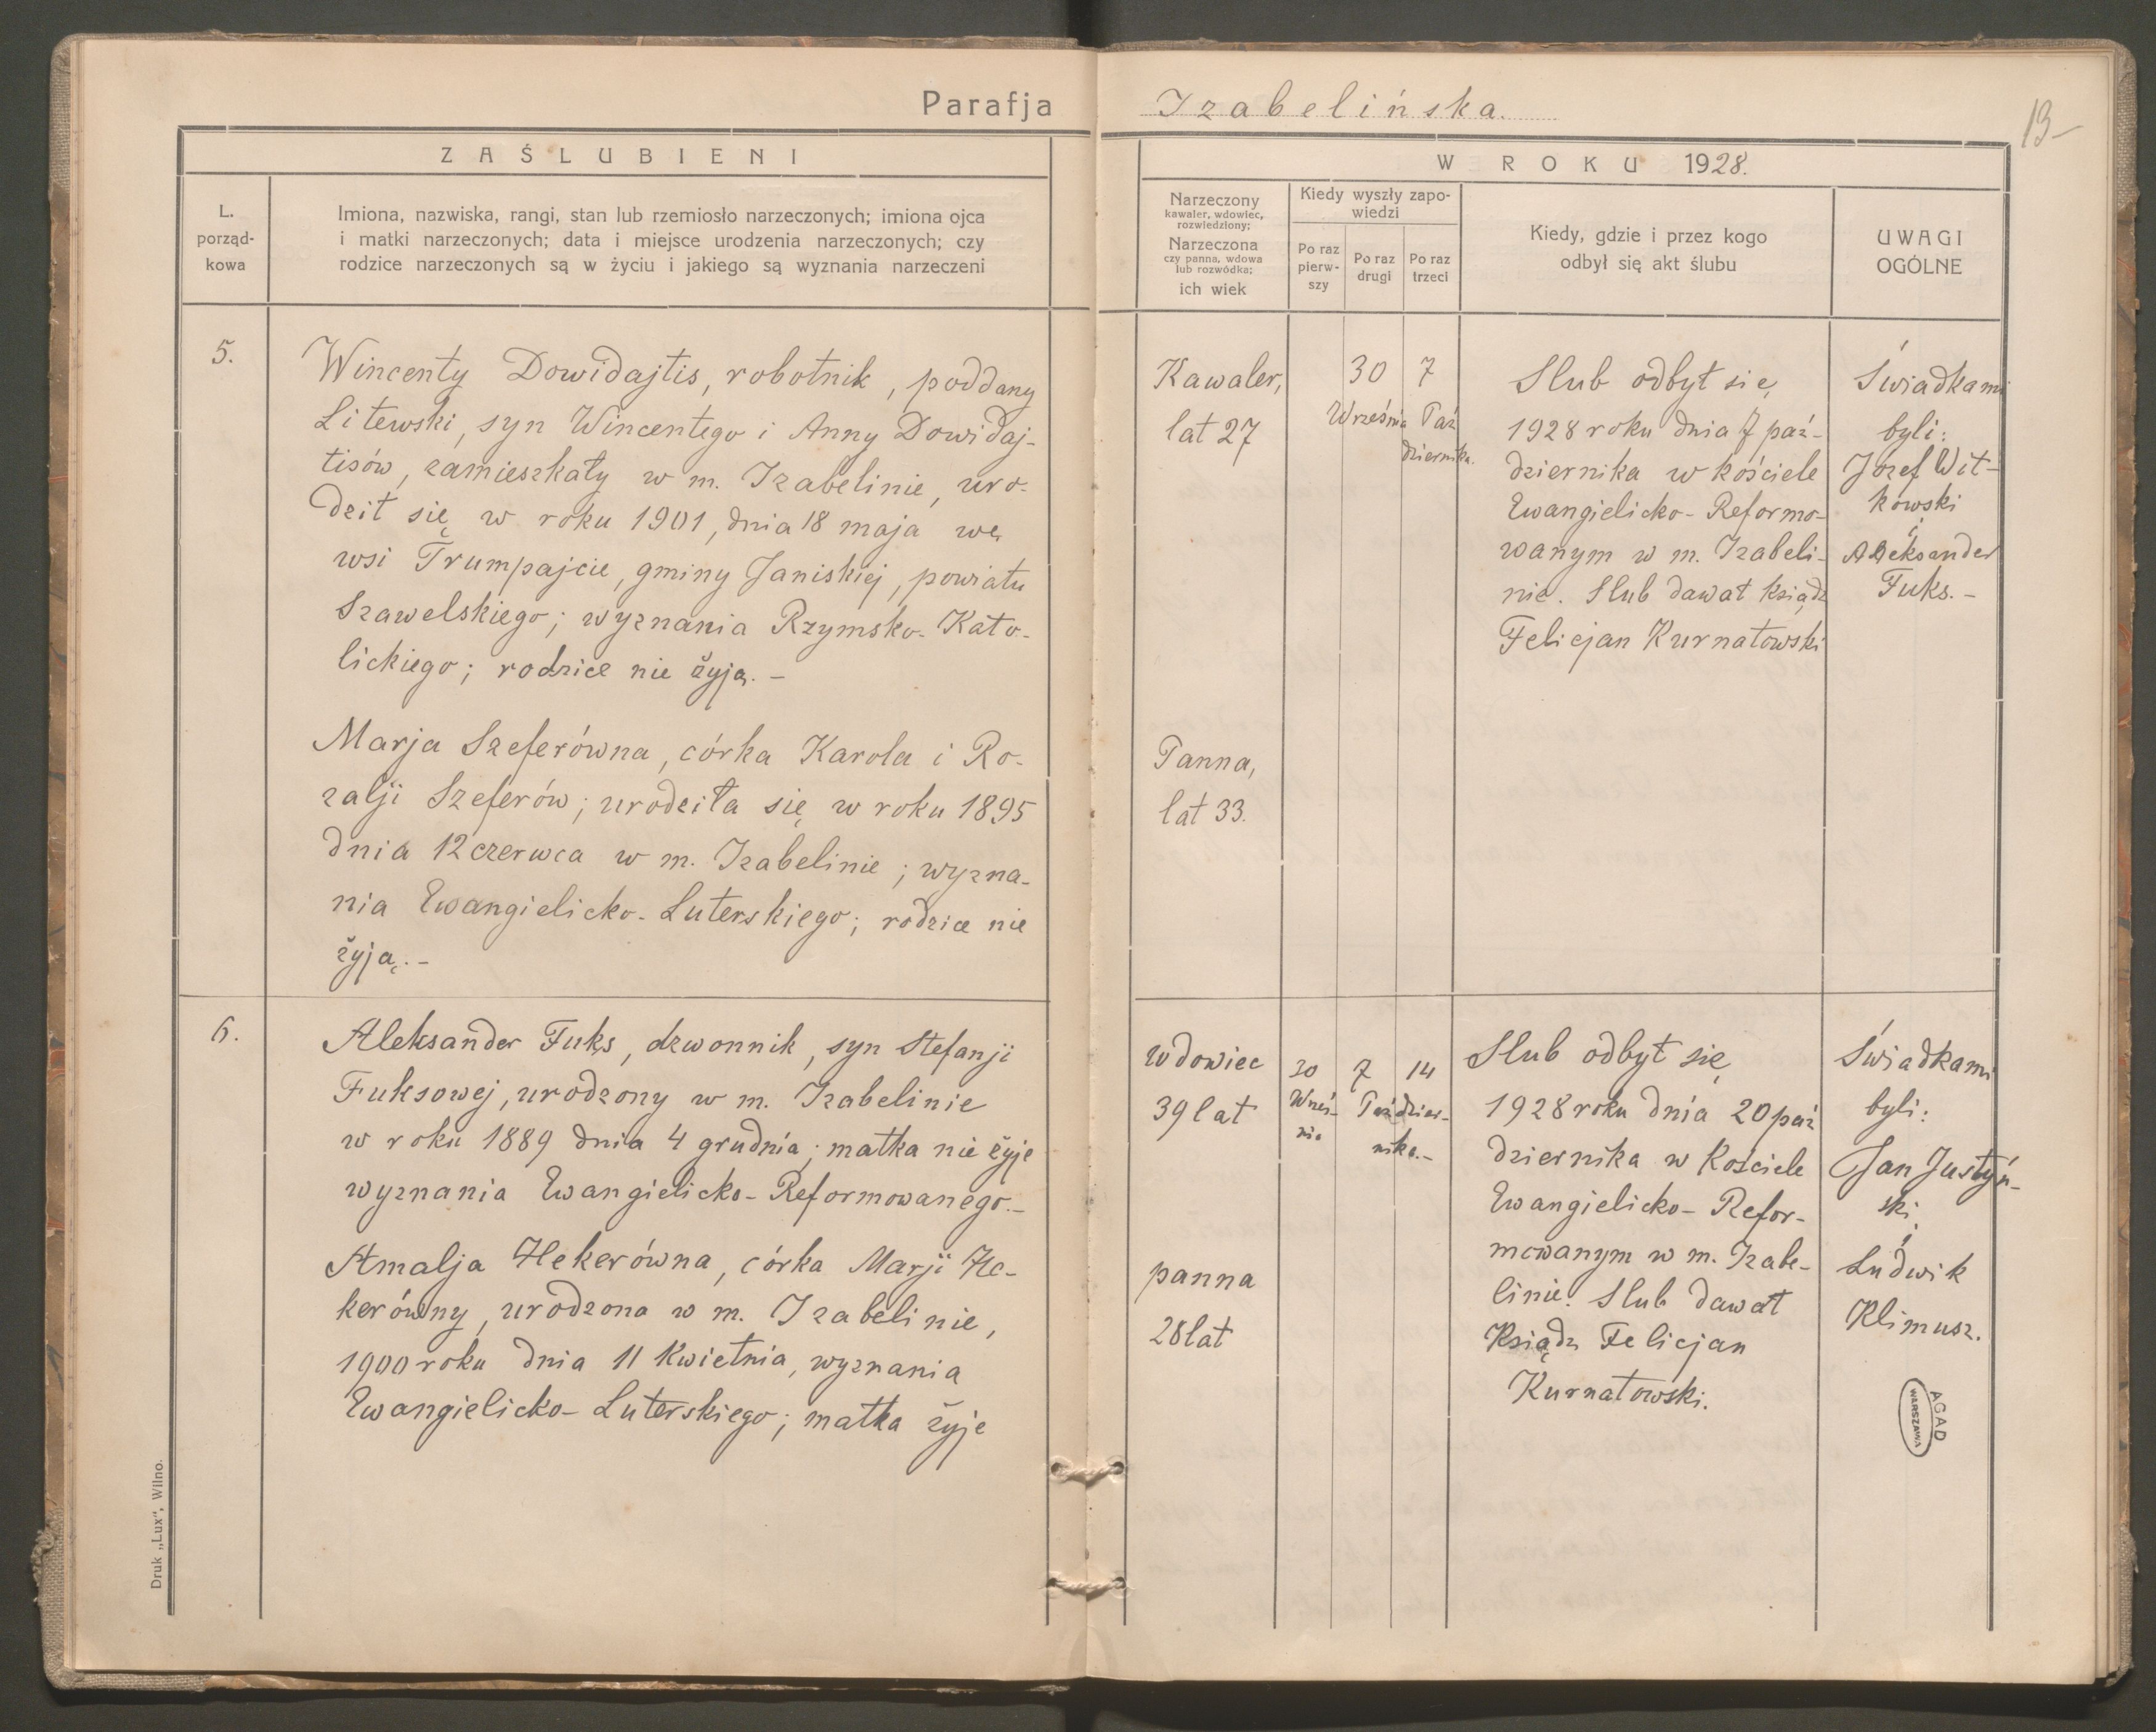 Parafja Izabelińska.
13-
ZAŚLUBIENI
W ROKU 1928.
L.
porząd-
kowa
Imiona, nazwiska, rangi, stan lub rzemiosło narzeczonych; imiona ojca
i matki narzeczonych; data i miejsce urodzenia narzeczonych; czy
rodzice narzeczonych są w życiu i jakiego są wyznania narzeczeni
Narzeczony
kawaler, wdowiec,
rozwiedziony;
Narzeczona
czy panna, wdowa
lub rozwódka;
ich wiek
Kiedy wyszły zapo-
wiedzi
Po raz
pierw-
szy
Po raz
drugi
Po raz
trzeci
Kiedy, gdzie i przez kogo
odbył się akt ślubu
UWAGI
OGÓLNE
5.
Wincenty Dowidajtis, robotnik, poddany
Litewski, syn Wincentego i Anny Dowidaj-
tisów, zamieszkały w m. Izabelinie, uro-
dził się w roku 1901, dnia 18 maja we
wsi Trumpajcie, gminy Janiskiej, powiatu
Szawelskiego; wyznania Rzymsko-Kato-
lickiego; rodzice nie żyją.-
Marja Szeferówna, córka Karola i Ro-
zalji Szeferów; urodziła się w roku 1895
dnia 12 czerwca w m. Izabelinie; wyzna-
nia Ewangielicko-Luterskiego; rodzice nie
żyją.-
Kawaler,
lat 27
Panna,
lat 33.
30
Września
7
Paź
dziernika.
Slub odbył się
1928 roku dnia 7 paź-
dziernika w kościele
Ewangielicko-Reformo-
wanym w m. Izabeli-
nie. Slub dawał ksiądz
Felicjan Kurnatowski
Świadkami
byli:
Józef Wit-
kowski
i
Aleksander
Fuks.-
6.
Aleksander Fuks, dzwonnik, syn Stefanji
Fuksowej, urodzony w m. Izabelinie
w roku 1889 dnia 4 grudnia; matka nie żyje
wyznania Ewangielicko-Reformowanego.-
Amalja Hekerówna, córka Marji He-
kerówny, urodzona w m. Izabelinie,
1900 roku dnia 11 Kwietnia, wyznania
Ewangielicko-Luterskiego; matka żyje
wdowiec
39 lat
panna
28 lat
30
Wrześ-
nia
7 14
Paździer-
nika.-
Slub odbył się
1928 roku dnia 20 paź
dziernika w Kościele
Ewangielicko-Refor-
mowanym w m. Izabe-
linie. Slub dawał
Ksiądz Felicjan
Kurnatowski.
Świadkami
byli:
Jan Justyń-
ski
i
Ludwik
Klimusz.
AGAD
WARSZAWA
Druk „Lux“, Wilno.